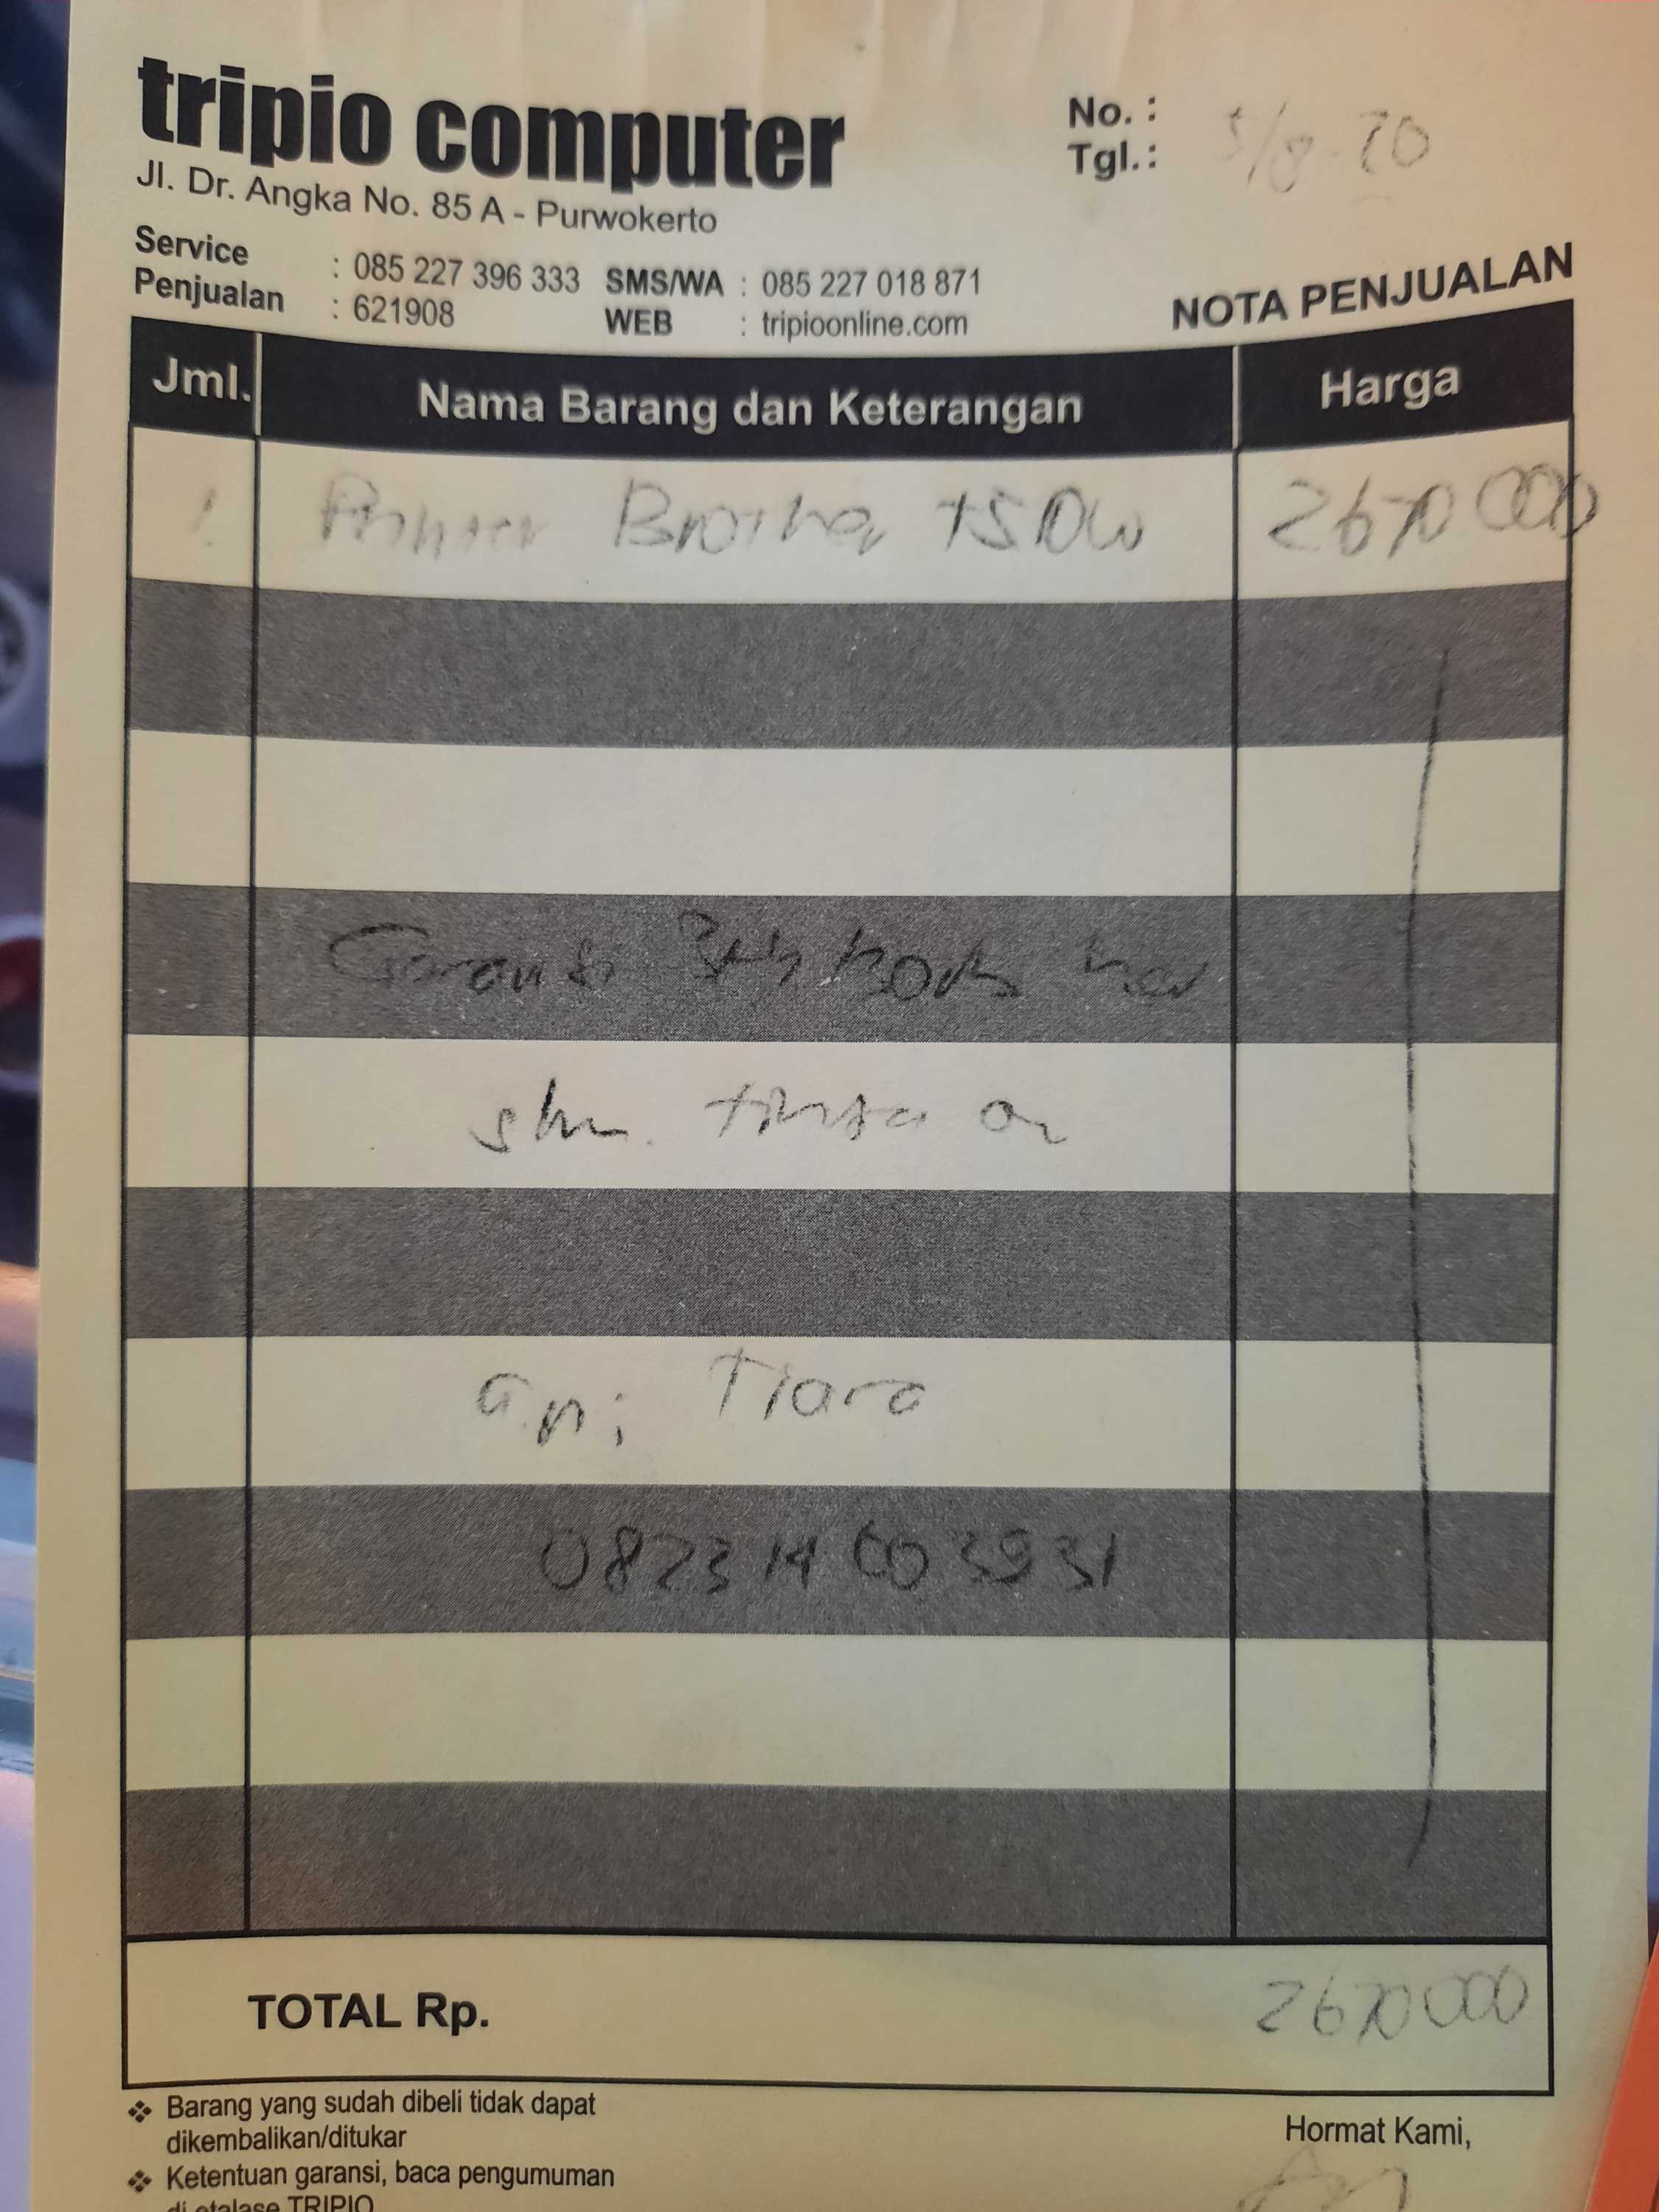 tripio computer
Jl. Dr. Angka No. 85 A - Purwokerto
No. :
Tgl. : 5/8-20
Service : 085 227 396 333 SMS/WA : 085 227 018 871
Penjualan : 621908 WEB : tripioonline.com
NOTA PENJUALAN
Jml. Nama Barang dan Keterangan Harga
1 Printer Brother T510W 2670000
Garansi
tinta
a.n; Tiara
TOTAL Rp. 2670000
❖ Barang yang sudah dibeli tidak dapat
dikembalikan/ditukar
Hormat Kami,
❖ Ketentuan garansi, baca pengumuman
di etalase TRIPIO